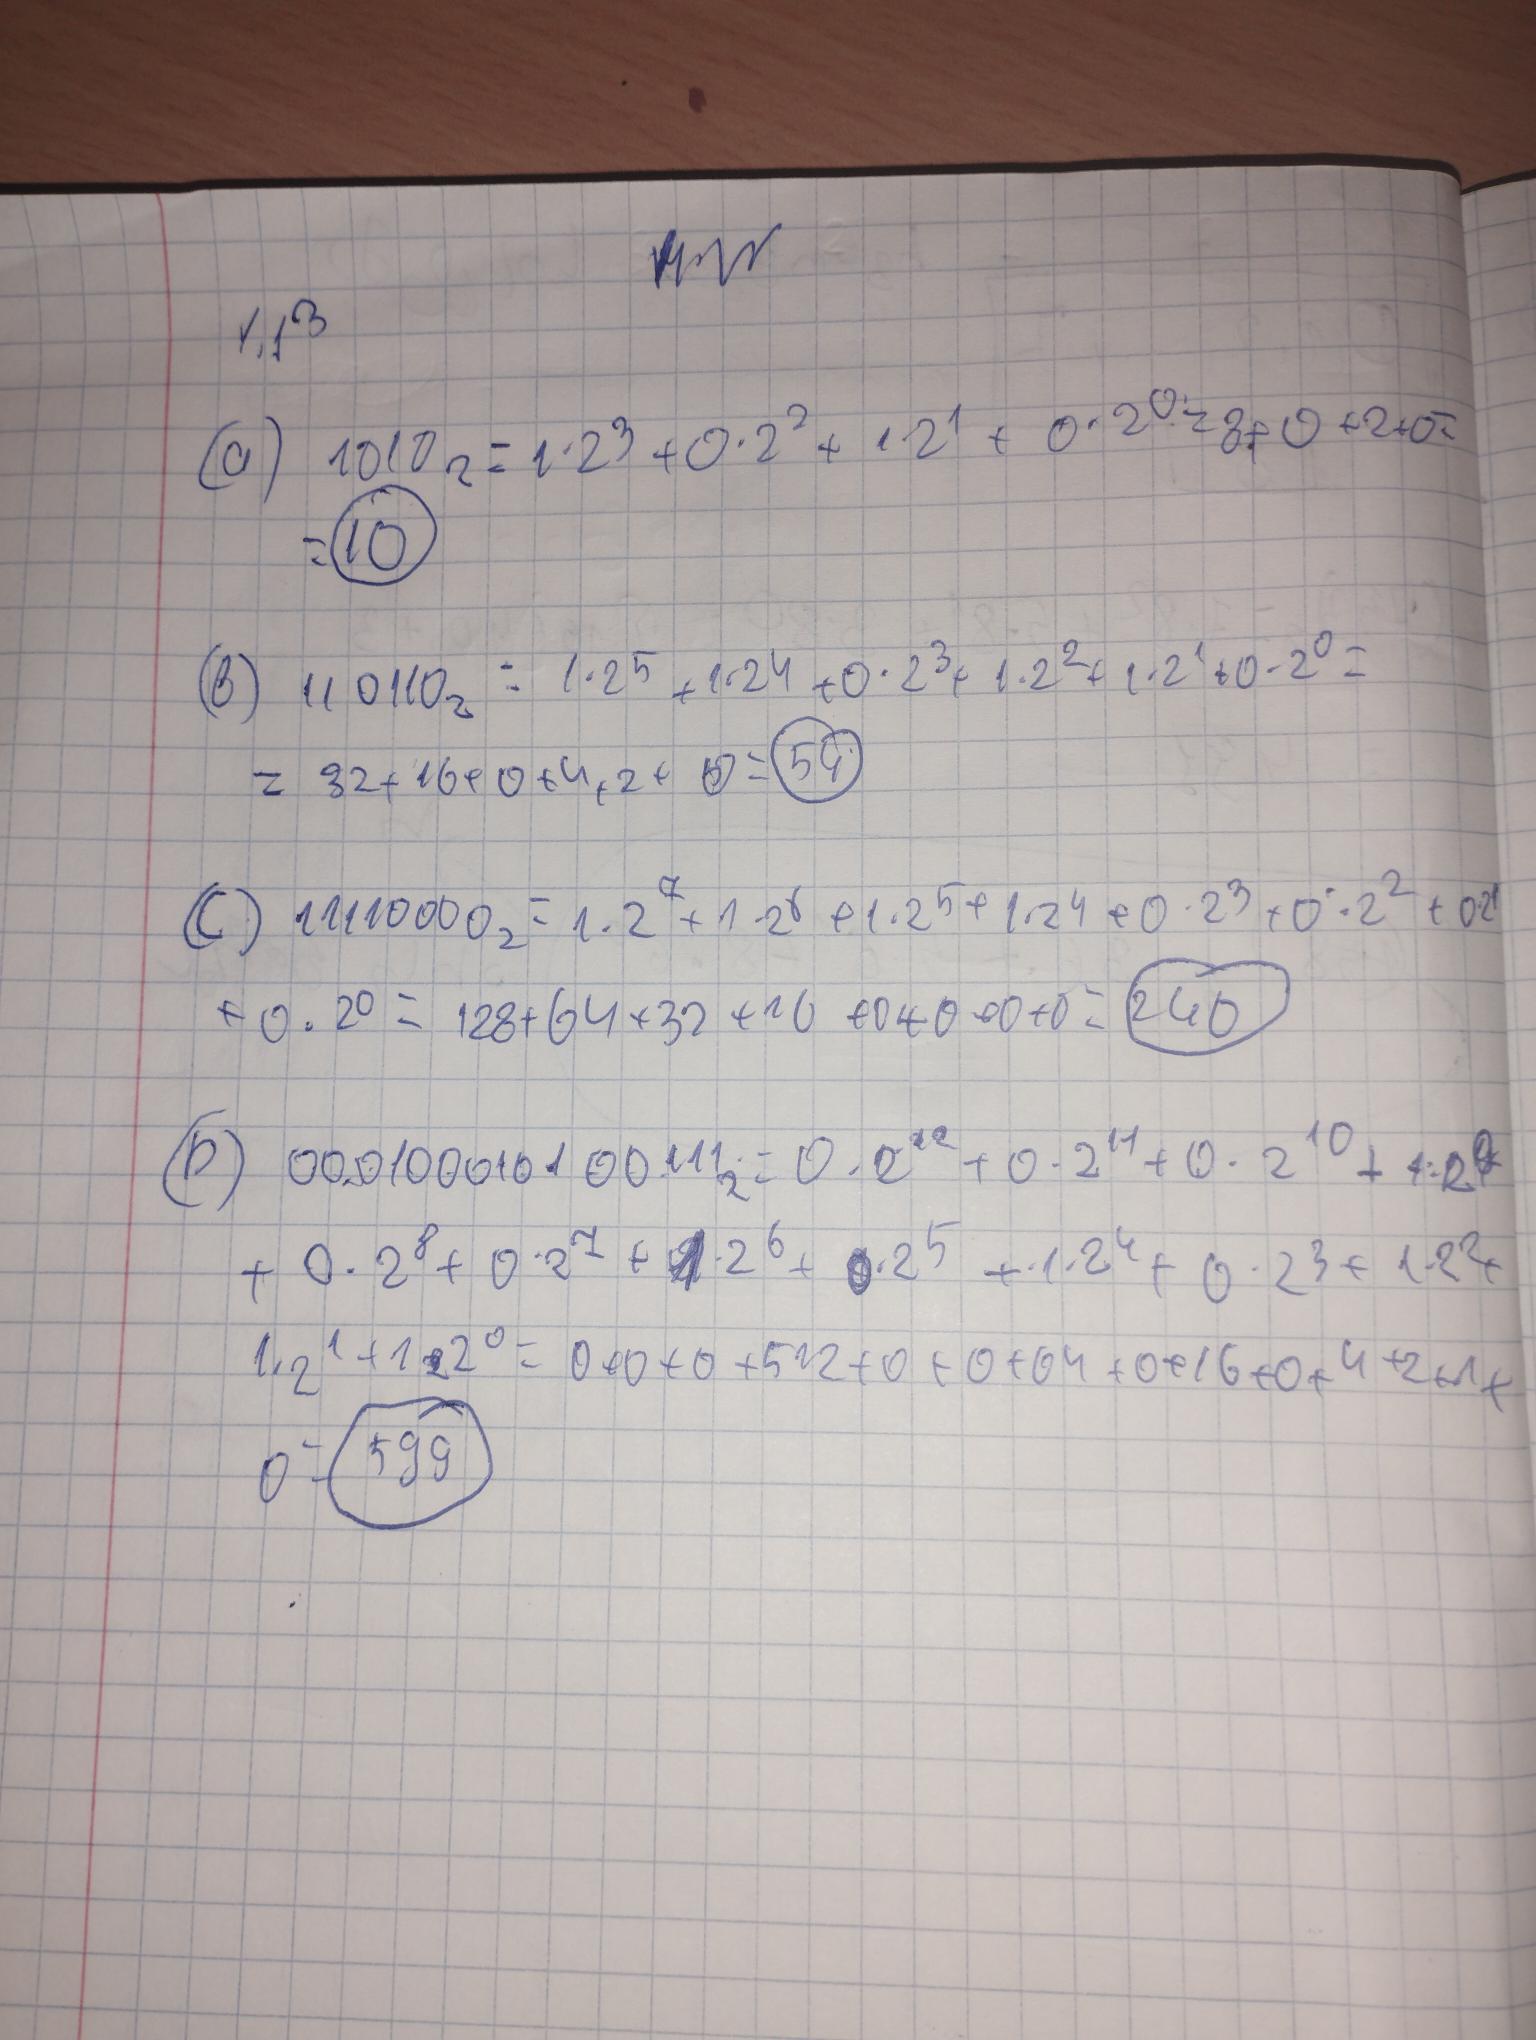 1.13
(a) 1010₂ = 1·2³ + 0·2² + 1·2¹ + 0·2⁰ = 8 + 0 + 2 + 0 =
= 10
(B) 110110₂ = 1·2⁵ + 1·2⁴ + 0·2³ + 1·2² + 1·2¹ + 0·2⁰ =
= 32 + 16 + 0 + 4 + 2 + 0 = 54
(C) 11110000₂ = 1·2⁷ + 1·2⁶ + 1·2⁵ + 1·2⁴ + 0·2³ + 0·2² + 0·2¹
+ 0·2⁰ = 128 + 64 + 32 + 16 + 0 + 0 + 0 + 0 = 240
(D) = 0·2¹² + 0·2¹¹ + 0·2¹⁰ + 1·2⁹
+ 0·2⁸ + 0·2⁷ + 1·2⁶ + 0·2⁵ + 1·2⁴ + 0·2³ + 1·2² +
1·2¹ + 1·2⁰ = 0+0+0+512+0+0+64+0+16+0+4+2+1+
0 = 599